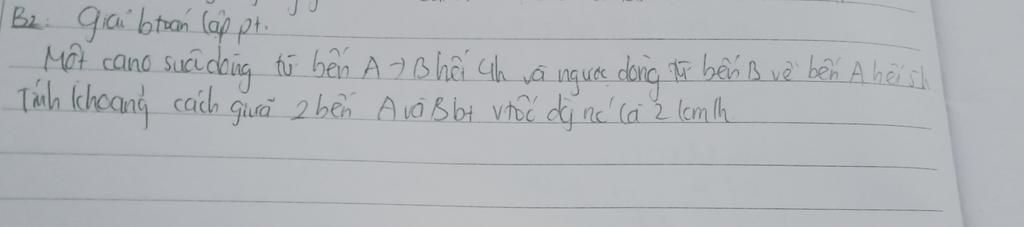 B2: Giải btoán lập pt.
Một cano suôi dòng từ bến A → B hết 4h và ngược dòng từ bến B về bến A hết 5h
Tính khoảng cách giữa 2 bến A và B bt vtốc dg nc là 2 km/h